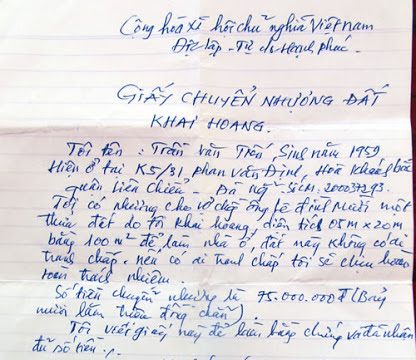 Cộng hòa xã hội chủ nghĩa Việt nam
Độc lập - Tự do Hạnh phúc.
GIẤY CHUYỂN NHƯỢNG ĐẤT
KHAI HOANG.
Tôi tên : Trần văn Trến, Sinh năm 1959
Hiện ở tại K5/31 phan văn Định, Hoà Khánh bắc
quận liên chiểu - Đà Nẵng SICM: 200037293.
Tôi có nhường cho vợ chồng ông lê đình Mười một
thửa đất do tôi khai hoang, diện tích 05m x 20m
bằng 100 m² để làm nhà ở, đất này không có ai
tranh chấp. nếu có ai tranh chấp tôi sẽ chịu hoàn
toàn trách nhiệm.
Số tiền chuyển nhường là 75.000.000đ (Bảy
mười lăm triệu đồng chẵn).
Tôi viết giấy này để làm bằng chứng và đã nhận
đủ số tiền.